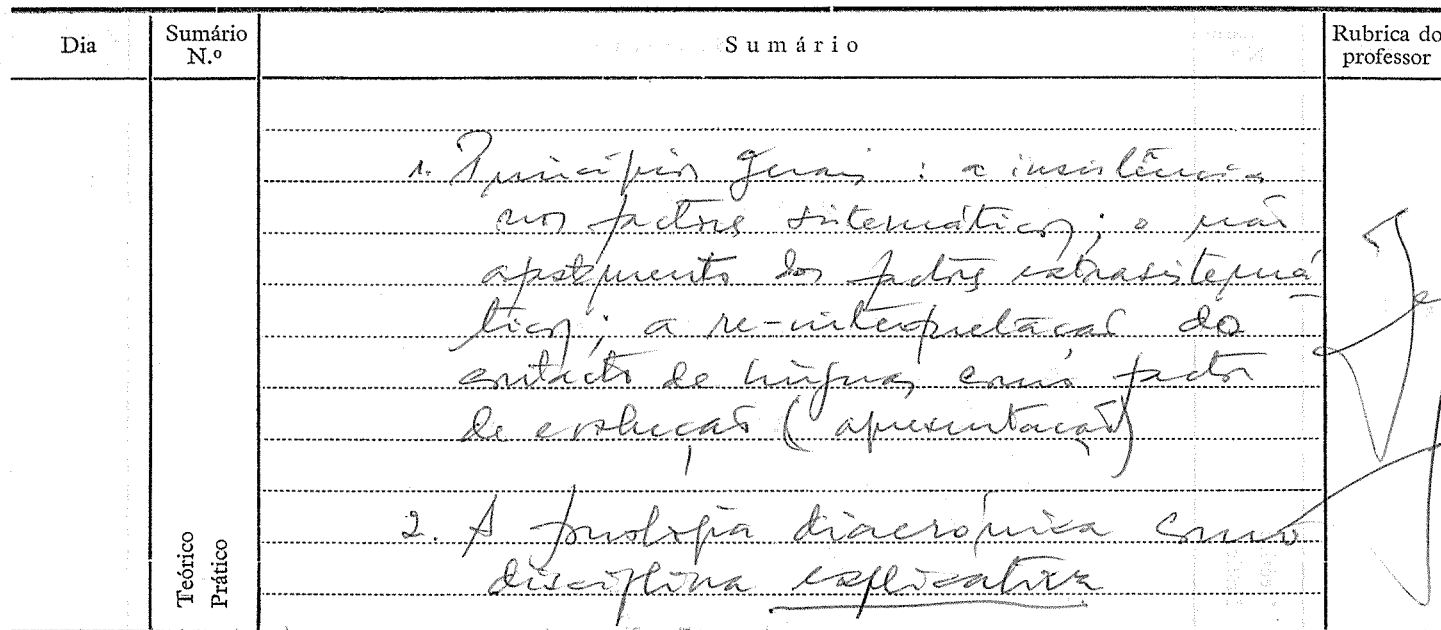 Dia
Sumário N.º
Sumário
Rubrica do professor
1. Princípios gerais : a insistência
nos factores sistemáticos; o não
apagamento dos factores extrasistemá
ticos; a re-interpretação do
contacto de línguas como factor
de evolução (apresentação)
2. A fonologia diacrónica como
disciplina explicativa
Teórico
Prático